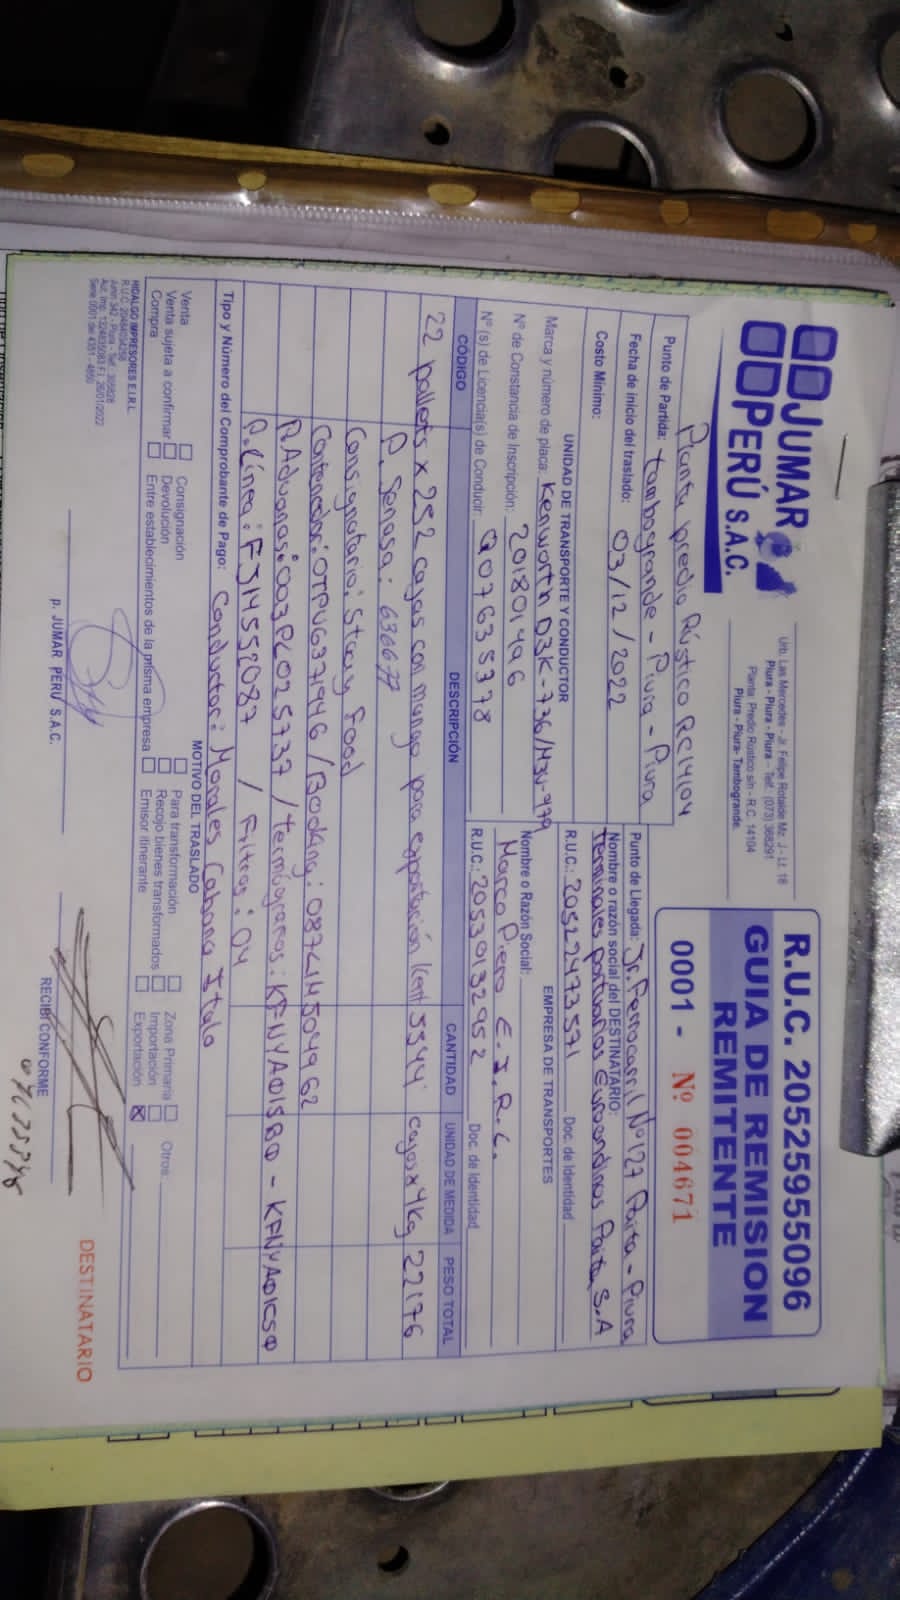 JUMAR
PERÚ S.A.C.
Urb. Las Mercedes - Jr. Felipe Rotalde Mz. J - Lt. 18
Piura - Piura - Piura - Telf.: (073) 368291
Planta: Predio Rustico s/n - R.C. 14104
Piura - Piura- Tambogrande
R.U.C. 20525955096
GUIA DE REMISION
REMITENTE
0001 - Nº 004671
Planta predio Rústico RC14104
Punto de Partida: tambogrande - Piura - Piura
Fecha de inicio del traslado: 03/12/2022
Costo Mínimo:
Punto de Llegada: Jr. Ferrocarril Nº127 Paita - Piura
Nombre o razón social del DESTINATARIO:
Terminales portuarios Euroandinos Paita S.A
R.U.C.: 20522473571 Doc. de Identidad
UNIDAD DE TRANSPORTE Y CONDUCTOR
Marca y número de placa: Kenworth D3K-776/M3U-979
Nº de Constancia de Inscripción: 201801496
Nº(s) de Licencia(s) de Conducir: Q07635378
EMPRESA DE TRANSPORTES
Nombre o Razón Social:
Marco Piero E.I.R.L.
R.U.C.: 20539132952 Doc. de Identidad
CÓDIGO DESCRIPCIÓN CANTIDAD UNIDAD DE MEDIDA PESO TOTAL
22 pallets x 252 cajas con mango para exportación Kent 5544 cajas x 4kg 22176
P. Senasa: 636677
Consignatario: Stay Food
Contenedor: OTPU6371946 / Booking: 087LIM504962
P. Aduanas: 003PL025737 / termógrafos: KFNYA01SB0 - KFNYA01CS0
P. línea: FJ14552087 / Filtros: 04
Tipo y Número del Comprobante de Pago: Conductor: Morales Cabana Italo
MOTIVO DEL TRASLADO
Venta
Venta sujeta a confirmar
Compra
Consignación
Devolución
Entre establecimientos de la misma empresa
Para transformación
Recojo bienes transformados
Emisor itinerante
Zona Primaria
Importación
Exportación
Otros:
HIDALGO IMPRESORES E.I.R.L.
p. JUMAR PERU S.A.C.
RECIBI CONFORME
DESTINATARIO